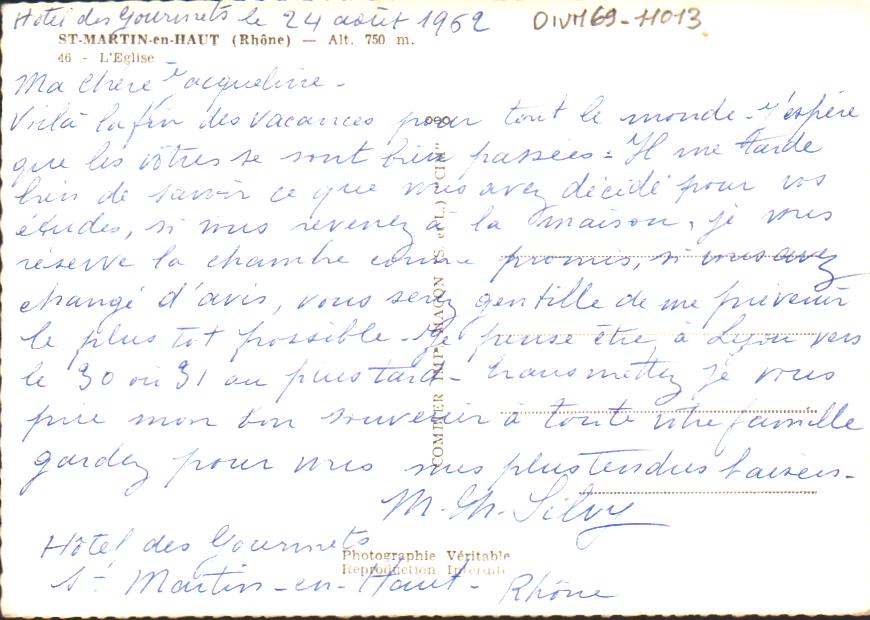 Hotel des Gourmets le 24 août 1962 DIVM69-H013
ST-MARTIN-en-HAUT (Rhône) — Alt. 750 m.
46 - L'Eglise
Ma chère Jacqueline -
Voilà la fin des vacances pour tout le monde - J'espère
que les vôtres se sont bien passées - Il me tarde
bien de savoir ce que vous avez décidé pour vos
études, si vous revenez à la maison, je vous
réserve la chambre comme promis, si vous avez
changé d'avis, vous serez gentille de me prévenir
le plus tot possible - Je pense être à Lyon vers
le 30 ou 31 au plus tard - Transmettez je vous
prie mon bon souvenir à toute votre famille
gardez pour vous mes plus tendres baisers -
M. Th. Silvy
Hôtel des Gourmets
St Martin-en-Haut - Rhône
COMBIER IMP. MACON (S. et L.) "CIM"
Photographie Véritable
Reproduction Interdite